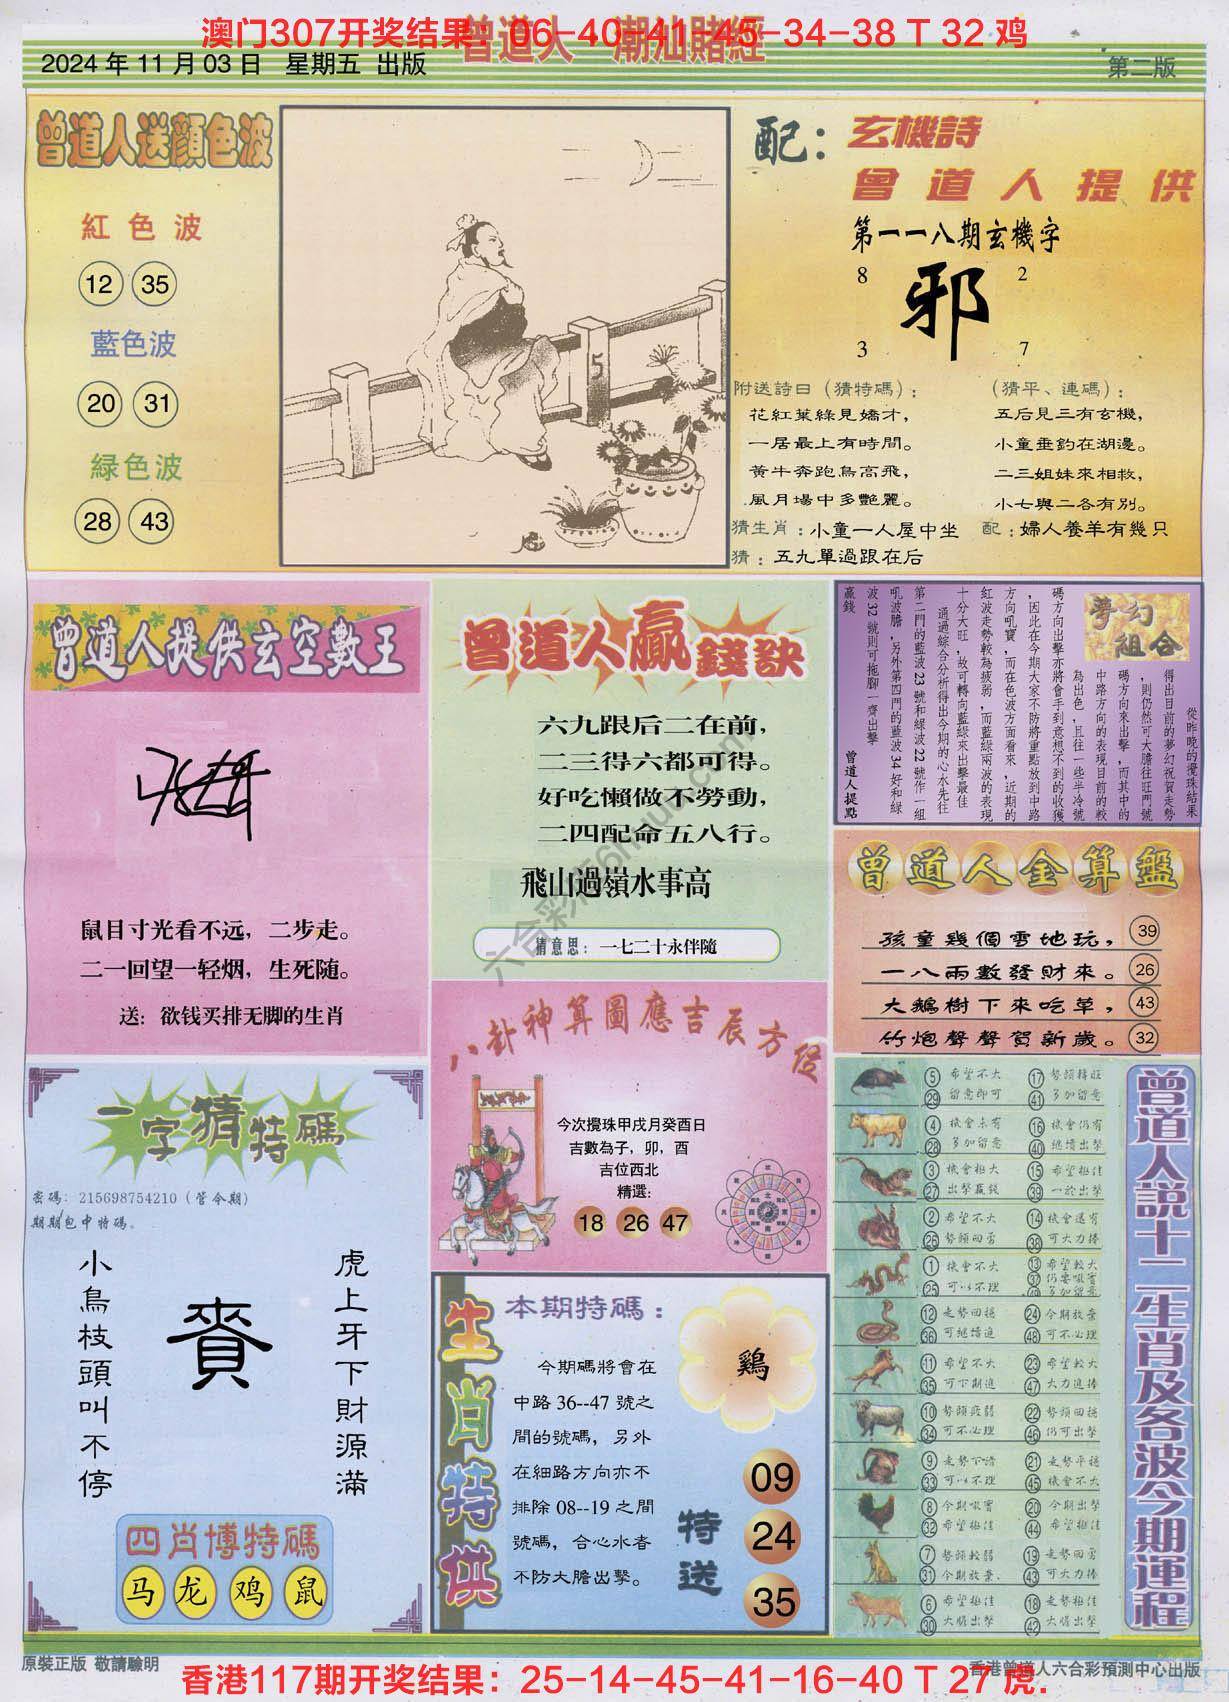 澳门307开奖结果：06-40-41-45-34-38 T 32 鸡
曾道人 潮汕賭經
2024 年 11 月 03 日 星期五 出版
第二版
曾道人送顔色波
紅色波
12 35
藍色波
20 31
緑色波
28 43
5
配：
玄機詩
曾道人提供
第一一八期玄機字
8 2
邪
3 7
附送詩曰（猜特碼）：
花紅葉綠見嬌才，
一居最上有時間。
黃牛奔跑鳥高飛，
風月場中多艷麗。
（猜平、連碼）：
五后見三有玄機，
小童垂釣在湖邊。
二三姐妹來相救，
小七與二各有別。
猜生肖：小童一人屋中坐
配：婦人養羊有幾只
猜：五九單過跟在后
曾道人提供玄空數王
鼠目寸光看不远，二步走。
二一回望一轻烟，生死随。
送：欲钱买排无脚的生肖
曾道人贏錢訣
六九跟后二在前，
二三得六都可得。
好吃懶做不勞動，
二四配命五八行。
飛山過嶺水事高
猜意思：一七二十永伴隨
夢幻組合
從昨晚的攪珠結果
得出目前的夢幻祝賀走勢
，則仍然可大膽往旺門號
碼方向來出擊，而其中的
中路方向的表現目前的較
為出色，且往一些半冷號
碼方向出擊亦將會手到意想不到的收獲
，因此在今期大家不防將重點放到中路
方向吼寶，而在色波方面看來，近期的
紅波走勢較為疲弱，而藍綠兩波的表現
十分大旺，故可轉向藍綠來出擊最佳
通過綜合分析得出今期的心水先往
第二門的藍波 23 號和綠波 22 號作一組
吼波膽，另外第四門的藍波 34 好和綠
波 32 號則可拖腳一齊出擊
贏錢
曾道人提點
曾道人金算盤
孩童幾個雪地玩，39
一八兩數發財來。26
大鵝樹下來吃草，43
竹炮聲聲賀新歲。32
八卦神算圖應吉辰方位
今次攪珠甲戌月癸酉日
吉數為子，卯，酉
吉位西北
精選：
18 26 47
一字猜特碼
密碼：215698754210（管令期）
期期包中特碼。
小鳥枝頭叫不停
賚
虎上牙下財源滿
四肖博特碼
马 龙 鸡 鼠
生肖特供
本期特碼：
鷄
今期碼將會在
中路 36--47 號之
間的號碼，另外
在細路方向亦不
排除 08--19 之間
號碼，合心水者
不防大膽出擊。
特送
09
24
35
曾道人説十二生肖及各波今期運程
5 29 希望不大 留意即可 17 41 勢頭轉旺 多加留意
4 28 機會未有 多加留意 16 40 機會仍有 繼續出擊
3 27 機會極大 出擊贏錢 15 39 希望極佳 一於出擊
2 26 希望不大 勢頭回勇 14 38 機會還有 可大力捧
1 25 機會不大 可以不理 13 32 49 希望較大 仍要吼實 多加留意
12 36 走勢回穩 可繼續追 24 48 今期放棄 可不必理
11 35 希望不大 可下期追 23 47 希望較大 大力追捧
10 34 勢頭疲弱 可不必理 22 46 勢頭回穩 仍可出擊
9 33 走勢下滑 可以不理 21 45 走勢平穩 機會不大
8 32 今期吼實 希望極佳 20 44 今期出擊 希望極佳
7 31 勢頭較弱 今期放棄 19 43 走勢回勇 可大力捧
6 30 希望極佳 大膽出擊 18 42 走勢極佳 大膽出擊
原裝正版 敬請驗明
香港曾道人六合彩預測中心出版
香港117期开奖结果：25-14-45-41-16-40 T 27 虎.